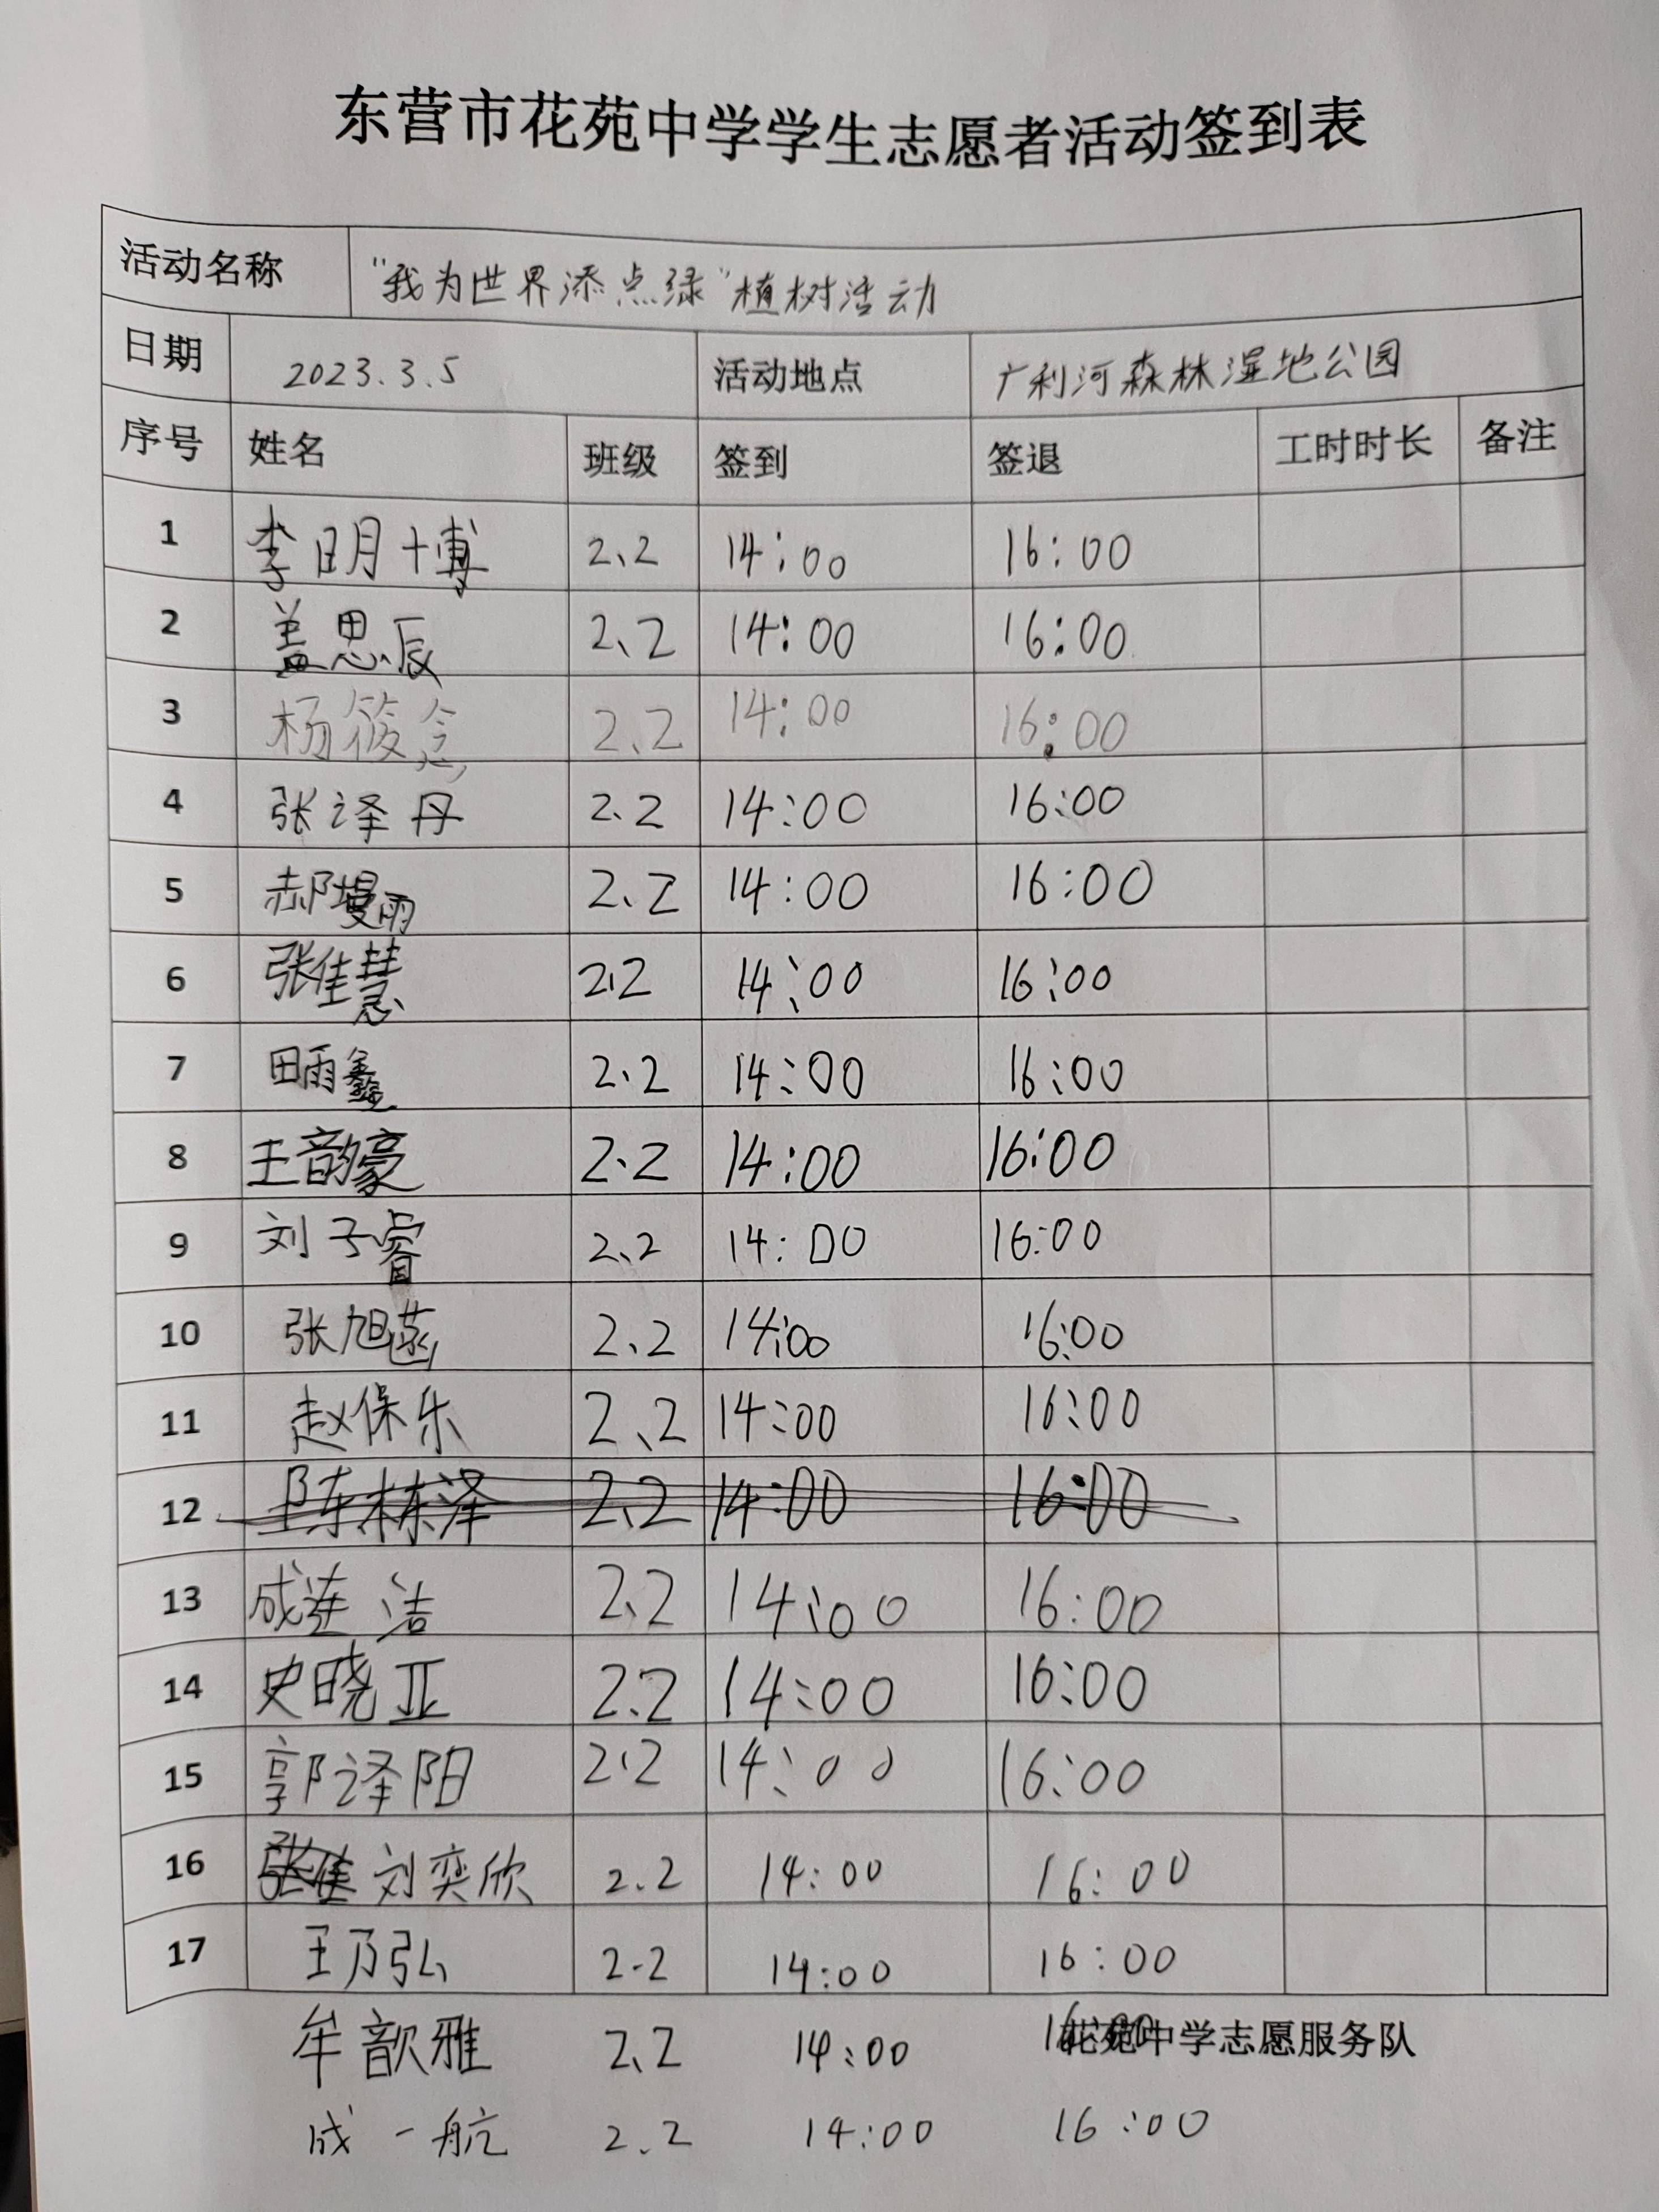 东营市花苑中学学生志愿者活动签到表
活动名称 “我为世界添点绿”植树活动
日期 2023.3.5 活动地点 广利河森林湿地公园
序号 姓名 班级 签到 签退 工时时长 备注
1 李明博 2、2 14:00 16:00
2 盖思辰 2、2 14:00 16:00
3 杨筱念 2、2 14:00 16:00
4 张泽丹 2、2 14:00 16:00
5 郝墁雨 2、2 14:00 16:00
6 张佳慧 2.2 14:00 16:00
7 田雨鑫 2、2 14:00 16:00
8 王韵豪 2、2 14:00 16:00
9 刘子睿 2、2 14:00 16:00
10 张旭菡 2、2 14:00 16:00
11 赵保乐 2、2 14:00 16:00
12 陈栋泽 2、2 14:00 16:00
13 成连洁 2、2 14:00 16:00
14 史晓亚 2.2 14:00 16:00
15 郭泽阳 2.2 14:00 16:00
16 张佳 刘奕欣 2.2 14:00 16:00
17 王乃弘 2.2 14:00 16:00
牟歆雅 2、2 14:00 16:00 花苑中学志愿服务队
成一航 2.2 14:00 16:00